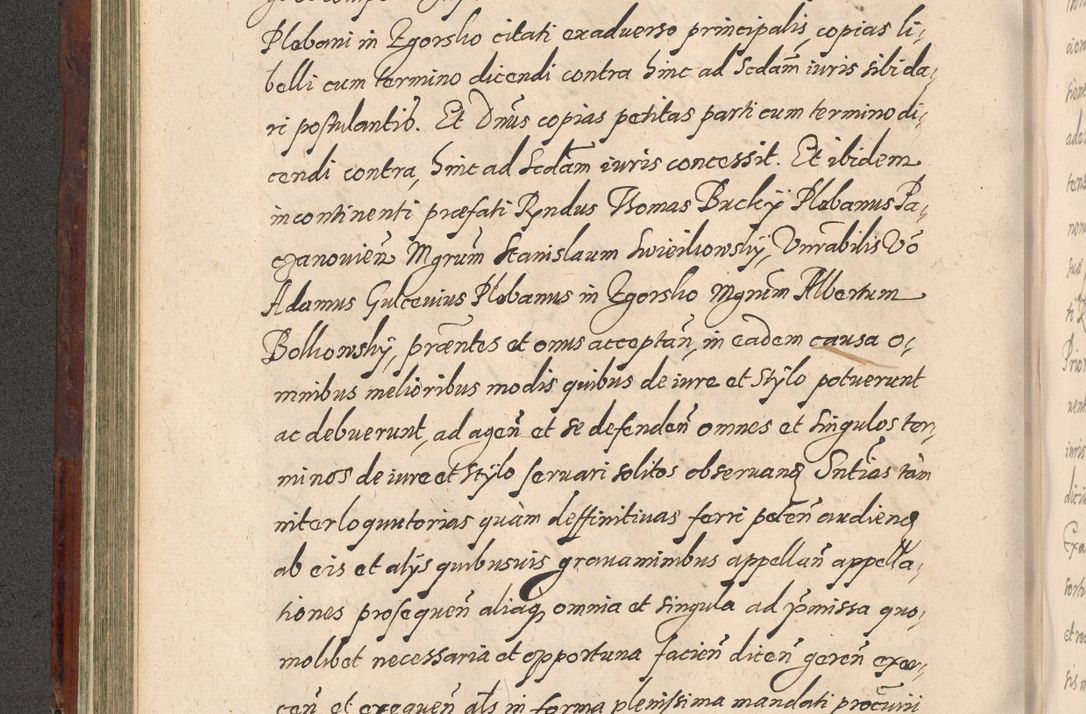 Plebani in Zgorsko citati exaduerso principalis, copias li,
belli cum termino dicendi contra hinc ad Scdam̃ iuris sibi da,
ri postulantiũ. Et Dñus copias petitas parti cum termino di,
cendi contra, hinc ad Scdam̃ iuris concessit. Et ibidem
incontinenti præfati Rṽndus Thomas Bucky Plebanus Pa,
czanouieñ Mgrum̃ Stanislaum Swieikowsky, Vnrãbilis Võ
Adamus Gulceuius Plebanus in Zgorsko Mgrum̃ Albertum
Bolkowsky, præñtes et onus acceptañ, in eadem causa o,
mnibus melioribus modis quibus de iure et Stylo potuerunt
ac debuerunt, ad ageñ et se defendeñ omnes et singulos ter,
minos de iure et Stylo seruari solitos obseruand Sntĩas tàm
niterloquutorias quàm deffinitiuas ferri peteñ audiend
ab eis et alys quibusuis grauaminibus appellañ appella,
tiones prosequeñ aliaq omnia et singula ad p̃missa quo,
molibet necessaria et opportuna facieñ diceñ gereñ exer,
ceñ et exequeñ als̃ in forma plenissima mandati procuñi